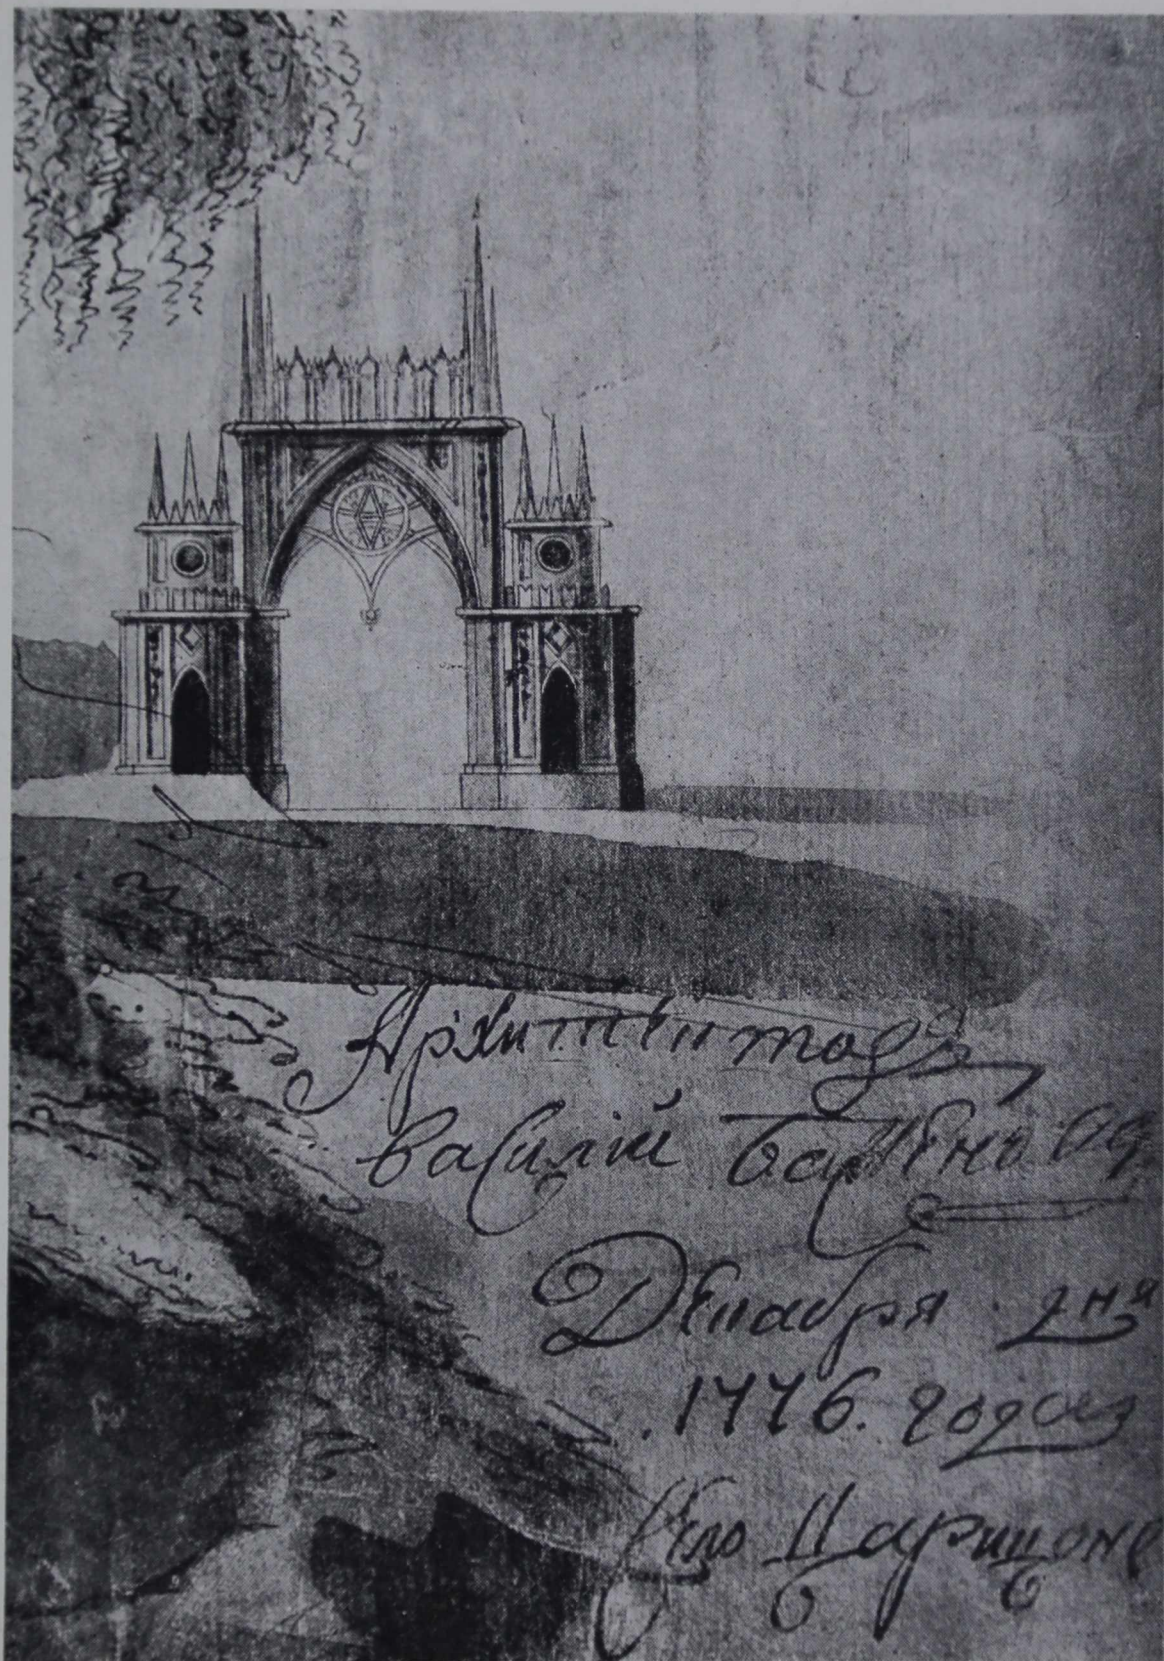 Архитекторъ
василий баженовъ
Декабря дня
.1776. года
село Царицоно